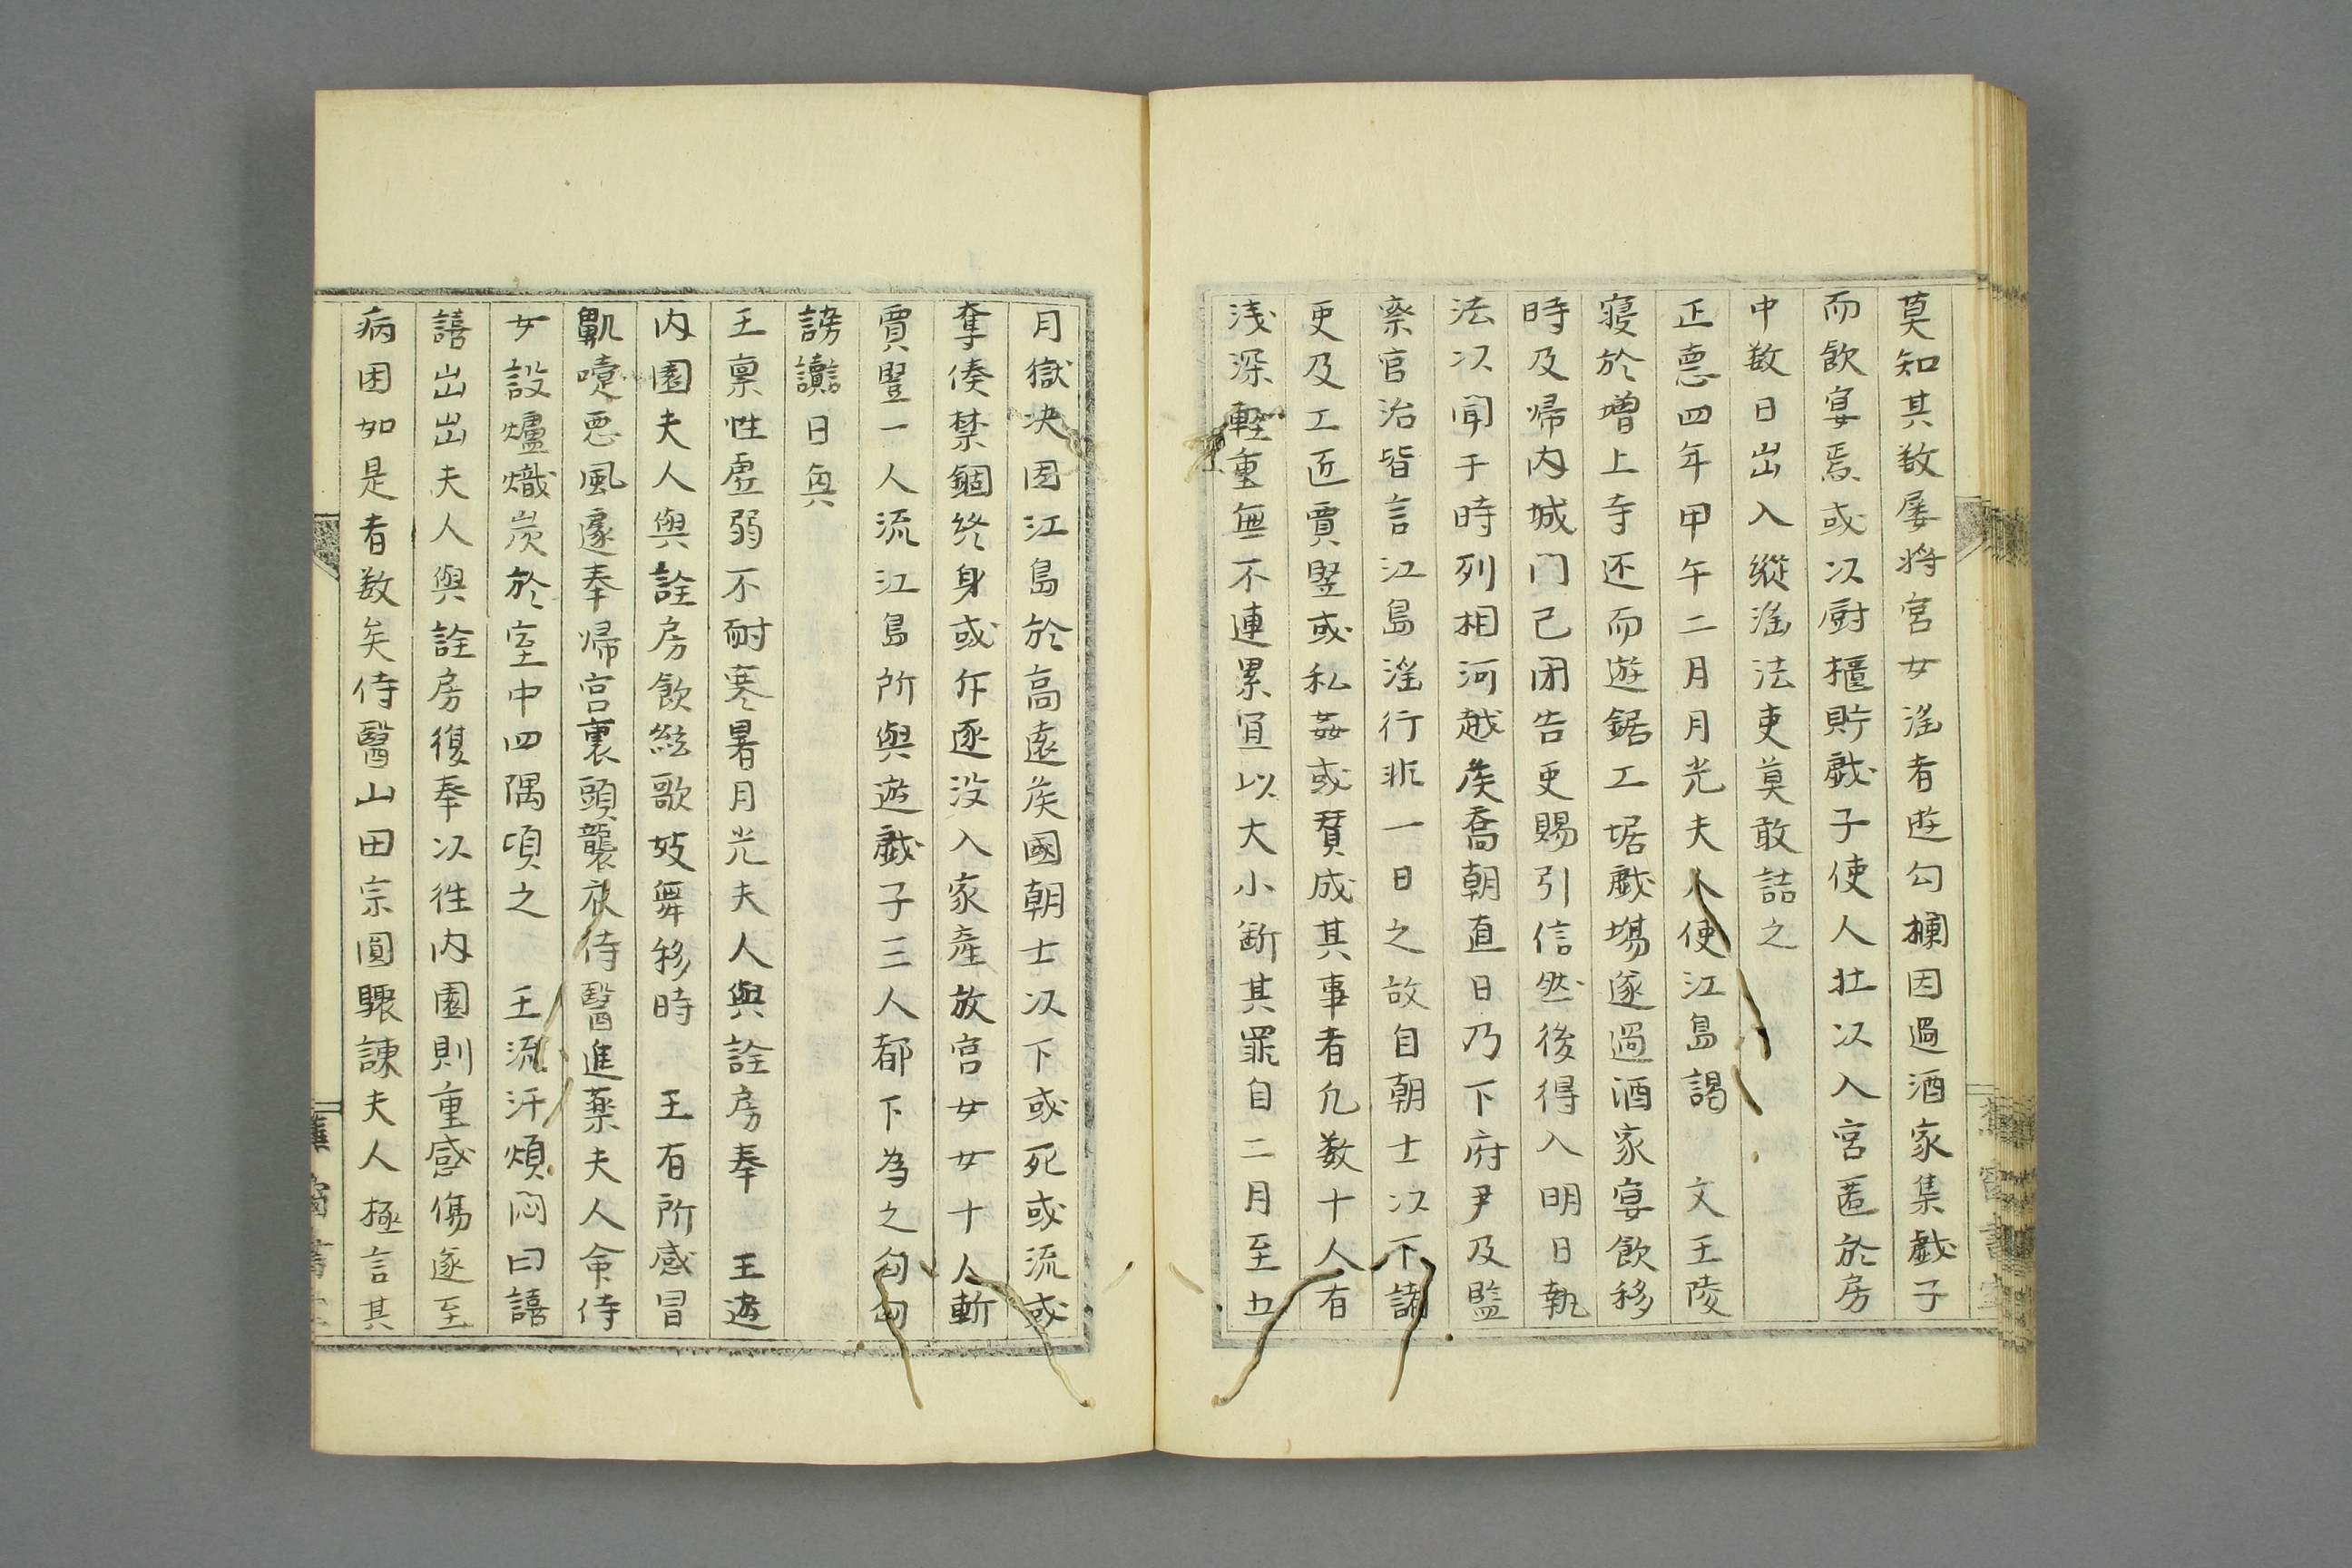 莫知其数屡將宮女滛者遊勾欄因過酒家集戯子
而飲宴焉或以厨櫃貯戯子使人扛以入宮匿於房
中数日出入縱滛法吏莫敢詰之
正悳四年甲午二月月光夫人使江島謁　文王陵
寝於增上寺还而遊鋸工堀戯塲遂過酒家宴飲移
時及帰内城门已闭告吏賜引信然後得入明日執
法以聞于時列相河越矦喬朝直日乃下府尹及監
察官治皆言江島滛行非一日之故自朝士以下諸
吏及工匠賈竪或私姦或賛成其事者凢数十人有
浅深輕重無不連累宜以大小断其罪自二月至五
月獄决囚江島於高遠矦國朝士以下或死或流或
奪俸禁錮终身或斥逐没入家產放宮女女十人斬
賈竪一人流江島所與遊戯子三人都下為之匈匈
謗讟日興
王禀性虚弱不耐寒暑月光夫人與詮房奉　王遊
内園夫人與詮房飲絃歌妓舞移時　王有所感冒
鼽嚏悪風遽奉帰宮裏頭襲衣侍醫進薬夫人命侍
女設爐熾炭於室中四隅頃之　王流汗煩悶曰譆
譆出出夫人與詮房復奉以徃内園則重感傷遂至
病困如是者数矣侍醫山田宗圓驟諌夫人極言其